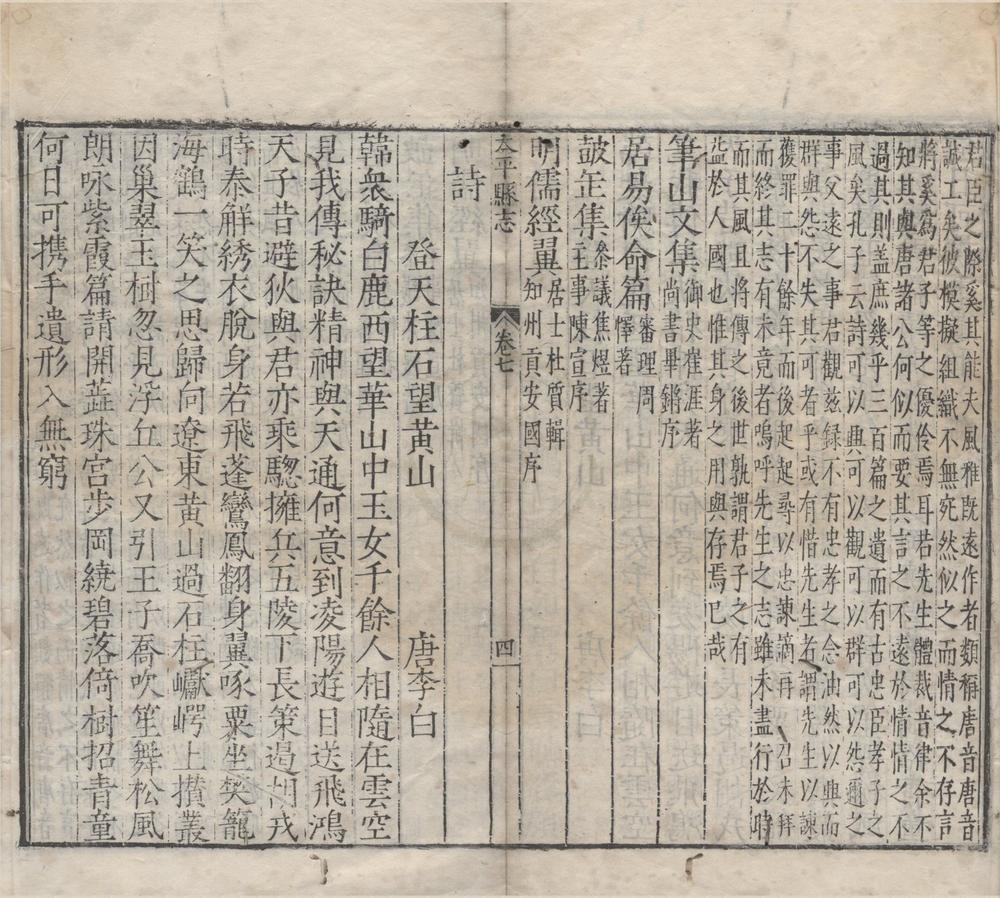 君臣之際奚其能夫風雅既遠作者類稱唐音唐音
誠工矣彼模擬組織不無宛然似之而情之不存言
將奚爲君子等之優伶焉耳若先生體裁音律余不
知其與唐諸公何似而要其言之不遠於情情之不
過其則盖庶幾乎三百篇之遺而有古忠臣孝子之
風矣孔子云詩可以興可以觀可以群可以怨邇之
事父遠之事君觀兹録不有忠孝之念油然以興而
群與怨不失其可者乎或有惜先生者謂先生以諫
獲罪二十餘年而後起起尋以忠諫謫再召未拜
而終其志有未竟者嗚呼先生之志雖未盡行於時
而其風且將傳之後世孰謂君子之有
益於人國也惟其身之用與存焉已哉
筆山文集御史崔涯著
尚書畢鏘序
居易俟命篇審理周
懌著
皷缶集叅議焦煜著
主事陳宣序
明儒經翼居士杜質輯
知州貢安國序
太平縣志
卷七
四
詩
登天柱石望黄山
唐李白
韓衆騎白鹿西望華山中玉女千餘人相隨在雲空
見我傳秘訣精神與天通何意到凌陽遊目送飛鴻
天子昔避狄與君亦乘驄擁兵五陵下長策遏胡戎
時泰解綉衣脫身若飛蓬鸞鳳翻身翼啄粟坐樊籠
海鶴一笑之思歸向遼東黄山過石柱巘崿上攢叢
因巢翠玉樹忽見浮丘公又引王子喬吹笙舞松風
朗咏紫霞篇請開蘂珠宫步岡繞碧落倚樹招青童
何日可携手遺形入無窮